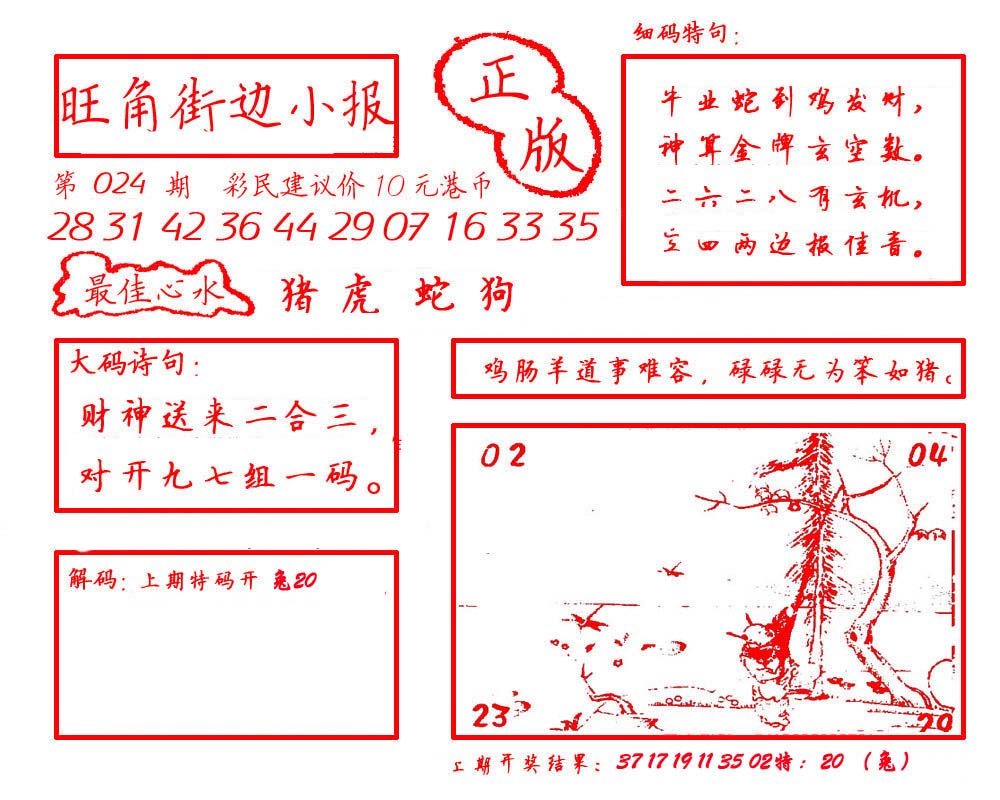 旺角街边小报
正版
第 024 期 彩民建议价10元港币
28 31 42 36 44 29 07 16 33 35
最佳心水 猪 虎 蛇 狗
细码特句：
牛业蛇到鸡发财，
神算金牌玄空数。
二六二八有玄机，
立四两边报佳音。
大码诗句：
财神送来二合三，
对开九七组一码。
鸡肠羊道事难容，碌碌无为笨如猪。
02
04
23
20
解码：上期特码开 兔20
上期开奖结果：37 17 19 11 35 02特：20（兔）